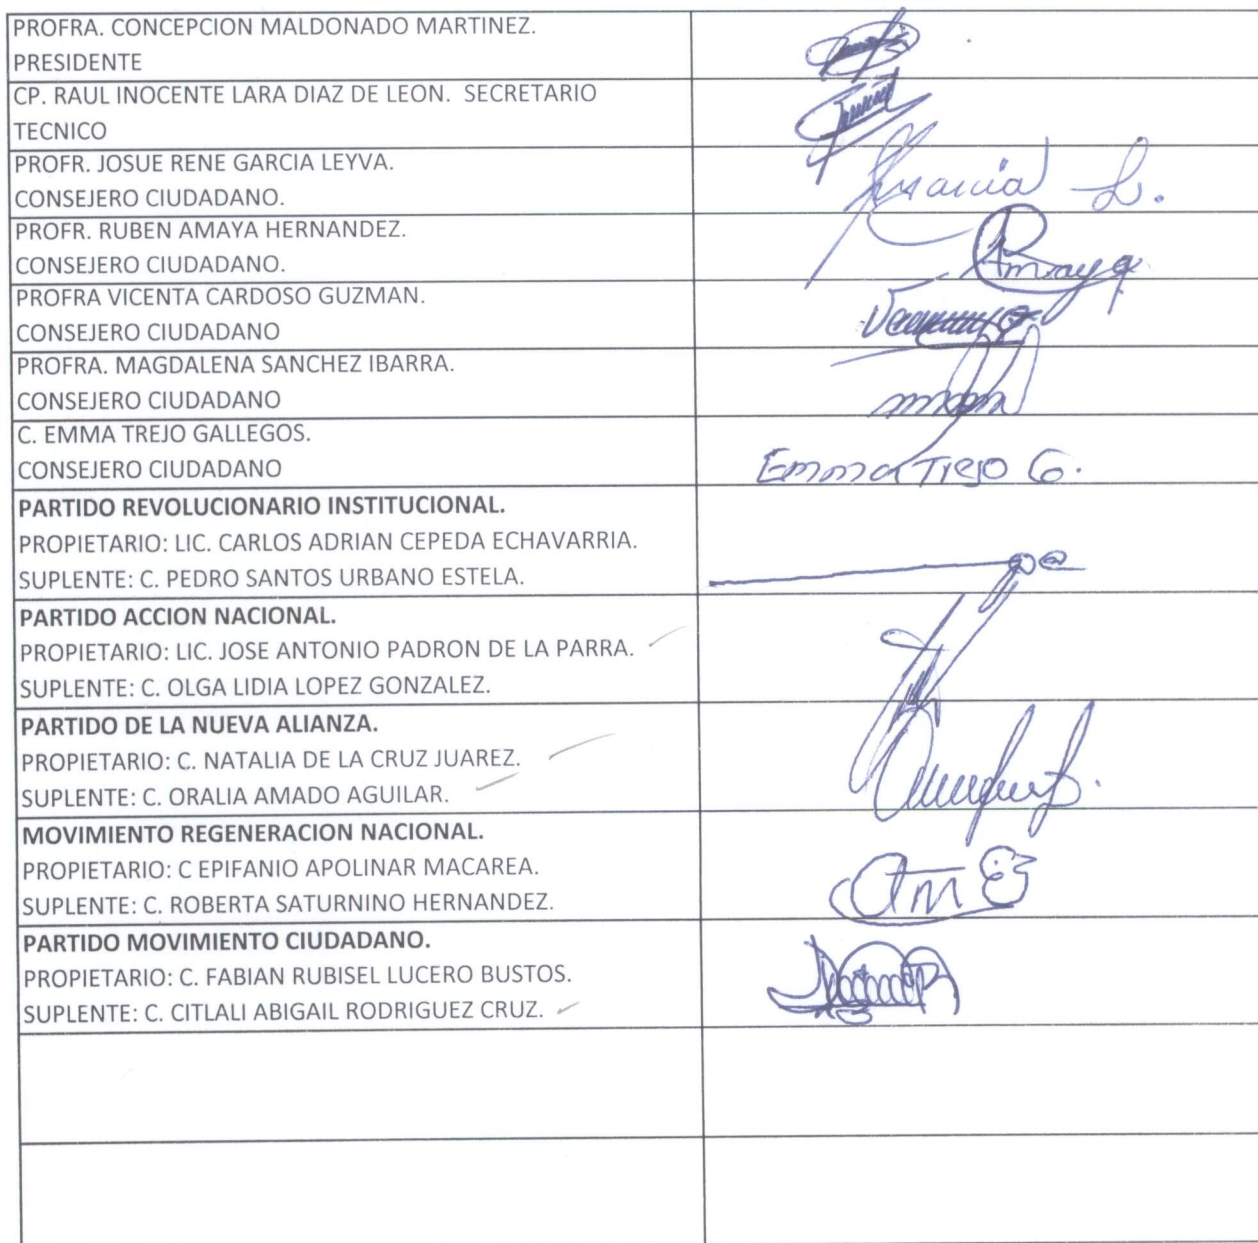 PROFRA. CONCEPCION MALDONADO MARTINEZ.
PRESIDENTE
CP. RAUL INOCENTE LARA DIAZ DE LEON.  SECRETARIO
TECNICO
PROFR. JOSUE RENE GARCIA LEYVA.
CONSEJERO CIUDADANO.
Garcia L.
PROFR. RUBEN AMAYA HERNANDEZ.
CONSEJERO CIUDADANO.
Amaya
PROFRA VICENTA CARDOSO GUZMAN.
CONSEJERO CIUDADANO
PROFRA. MAGDALENA SANCHEZ IBARRA.
CONSEJERO CIUDADANO
C. EMMA TREJO GALLEGOS.
CONSEJERO CIUDADANO
Emma Trejo G.
PARTIDO REVOLUCIONARIO INSTITUCIONAL.
PROPIETARIO: LIC. CARLOS ADRIAN CEPEDA ECHAVARRIA.
SUPLENTE: C. PEDRO SANTOS URBANO ESTELA.
PARTIDO ACCION NACIONAL.
PROPIETARIO: LIC. JOSE ANTONIO PADRON DE LA PARRA.
SUPLENTE: C. OLGA LIDIA LOPEZ GONZALEZ.
PARTIDO DE LA NUEVA ALIANZA.
PROPIETARIO: C. NATALIA DE LA CRUZ JUAREZ.
SUPLENTE: C. ORALIA AMADO AGUILAR.
MOVIMIENTO REGENERACION NACIONAL.
PROPIETARIO: C EPIFANIO APOLINAR MACAREA.
SUPLENTE: C. ROBERTA SATURNINO HERNANDEZ.
PARTIDO MOVIMIENTO CIUDADANO.
PROPIETARIO: C. FABIAN RUBISEL LUCERO BUSTOS.
SUPLENTE: C. CITLALI ABIGAIL RODRIGUEZ CRUZ.